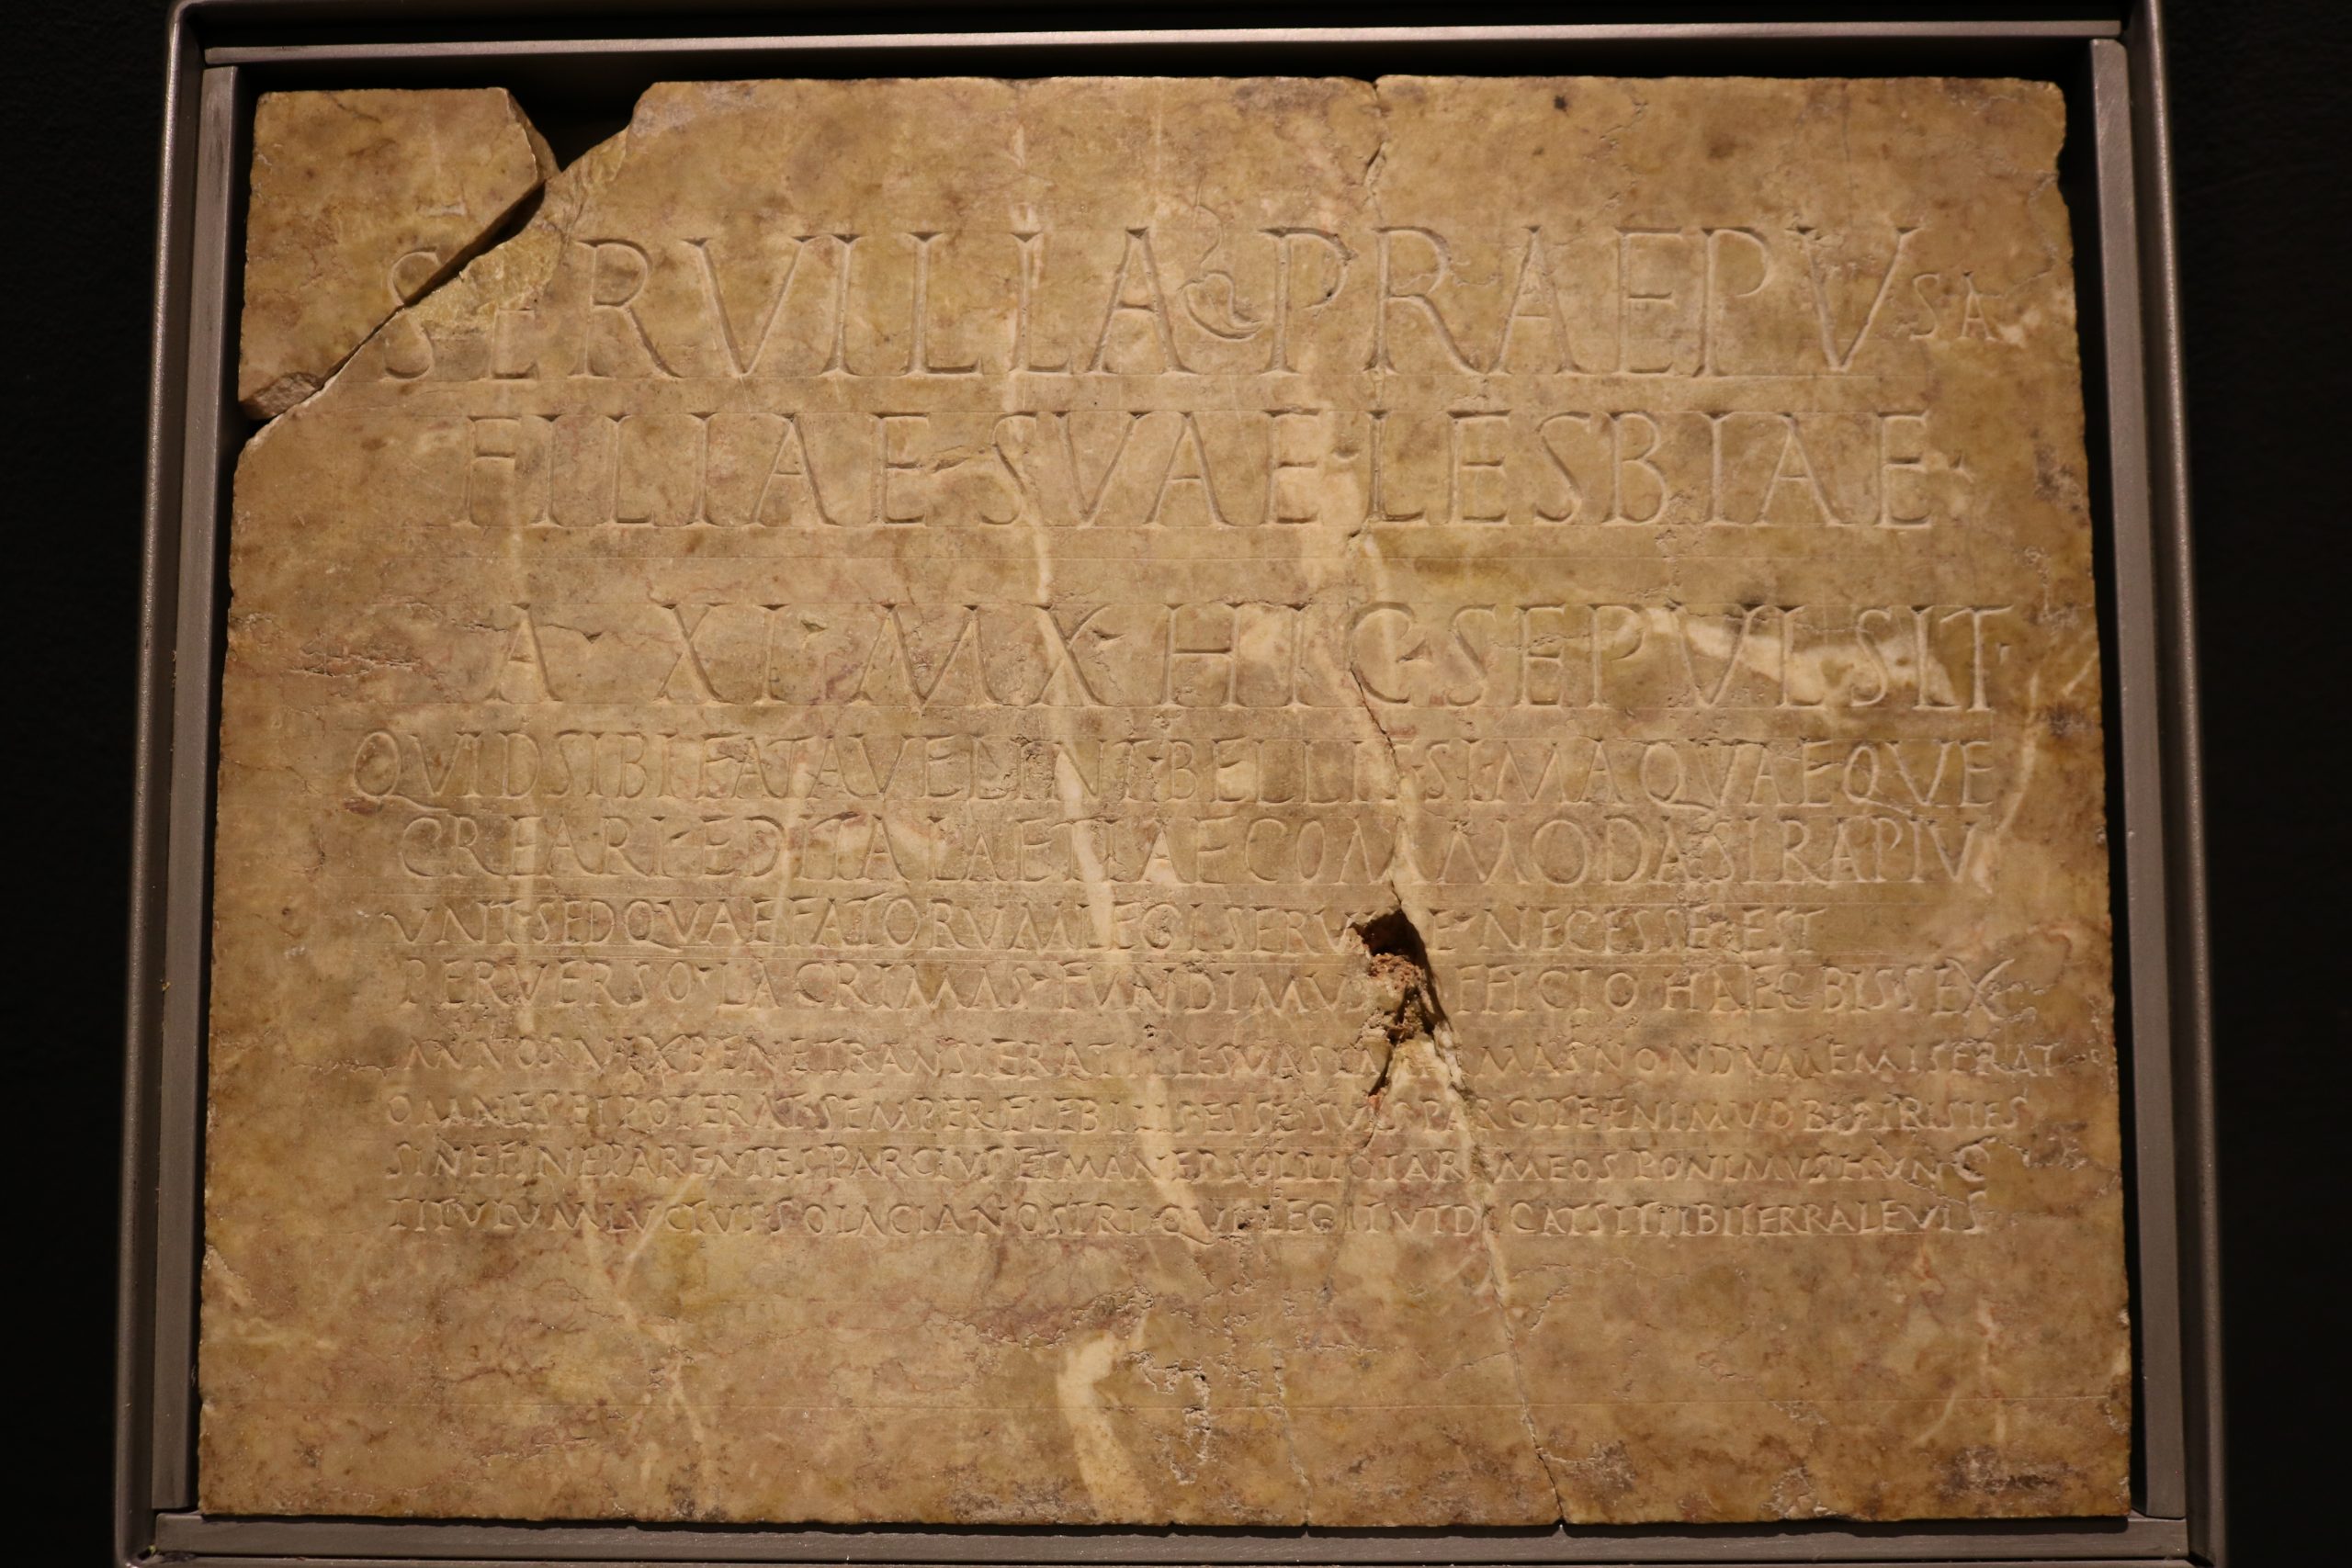 SERVILLA PRAEPVSA
FILIAE SVAE LESBIAE
A XI M X HIC SEPVL SIT
QVID SIBI FATA VELINT BELLISSIMA QVAEQVE
CREARI EDITA LAETITIAE COMMODA SI RAPIV
VNT SED QVAE FATORVM LEGI SERV E NECESSE EST
PERVERSO LACRIMAS FVNDIMVS FFICIO HAEC BIS SEX
ANNOS VIX BENE TRANSIERAT NONDVM EMISERAT
OMNES ET POTERAT SEMPER FLEBILIS ESSE SVIS PARCITE ENIM VOBIS TRISTES
SINE FINE PARENTES PARCITE ET MANES SOLLICITARE MEOS PONIMVS HVNC
TITVLVM LVCTVS SOLACIA NOSTRI QVI LEGIT VT DICAT SIT TIBI TERRA LEVIS